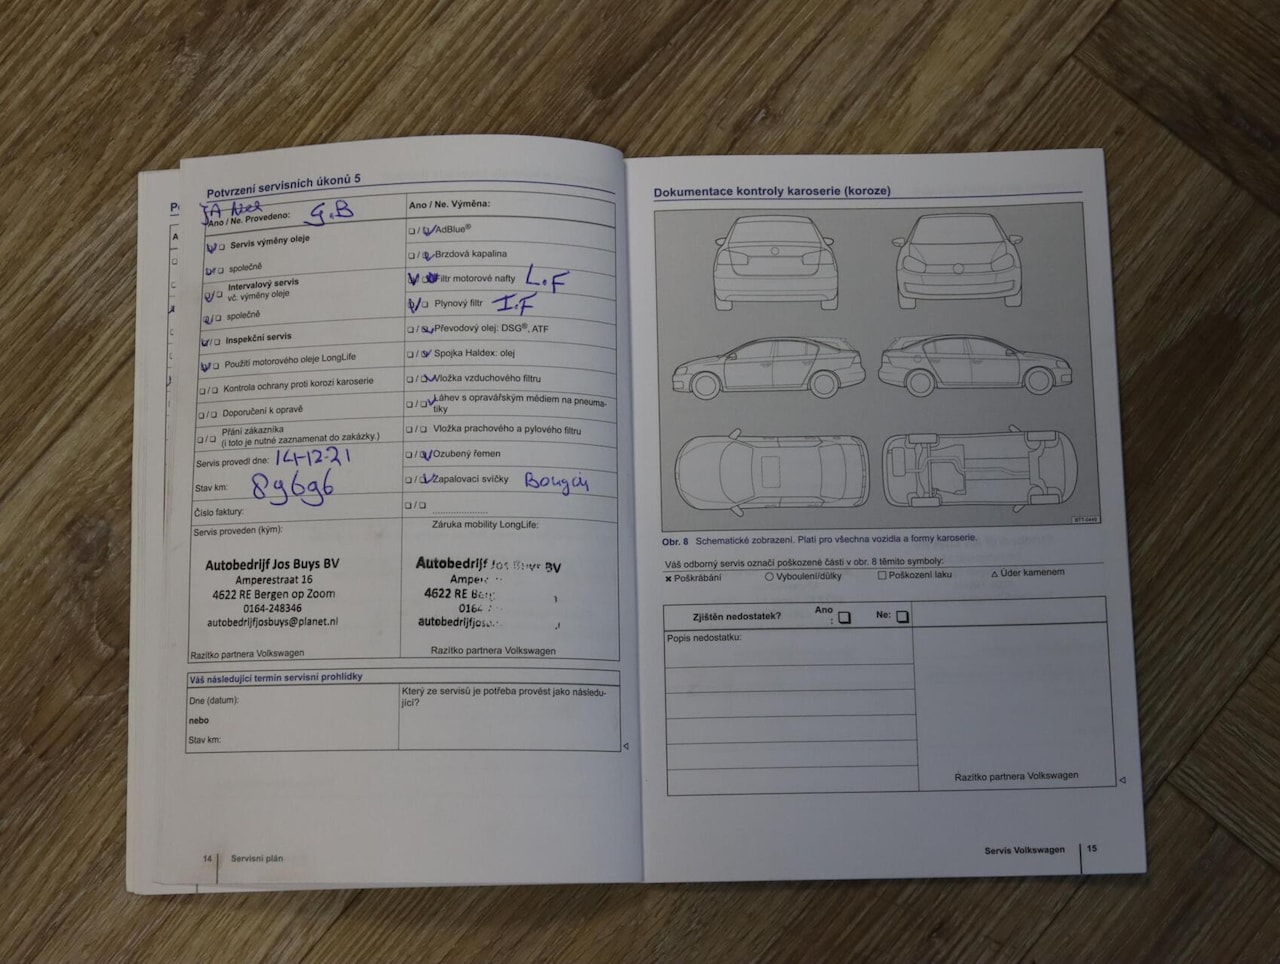 Potvrzení servisních úkonů 5
JA Nee
Ano / Ne. Provedeno: G.B
Servis výměny oleje
společně
Intervalový servis
vč. výměny oleje
společně
Inspekční servis
Použití motorového oleje LongLife
Kontrola ochrany proti korozi karoserie
Doporučení k opravě
Přání zákazníka
(i toto je nutné zaznamenat do zakázky.)
Servis provedl dne: 14-12-21
Stav km: 89696
Číslo faktury:
Servis proveden (kým):
Autobedrijf Jos Buys BV
Amperestraat 16
4622 RE Bergen op Zoom
0164-248346
autobedrijfjosbuys@planet.nl
Razítko partnera Volkswagen
Ano / Ne. Výměna:
AdBlue®
Brzdová kapalina
Filtr motorové nafty L.F
Plynový filtr I.F
Převodový olej: DSG®, ATF
Spojka Haldex: olej
Vložka vzduchového filtru
Láhev s opravářským médiem na pneuma-
tiky
Vložka prachového a pylového filtru
Ozubený řemen
Zapalovací svíčky
Záruka mobility LongLife:
Autobedrijf Jos Buys BV
4622 RE
Razítko partnera Volkswagen
Váš následující termín servisní prohlídky
Dne (datum):
nebo
Stav km:
Který ze servisů je potřeba provést jako následu-
jící?
14 Servisní plán
Dokumentace kontroly karoserie (koroze)
Obr. 8 Schematické zobrazení. Platí pro všechna vozidla a formy karoserie.
Váš odborný servis označí poškozené části v obr. 8 těmito symboly:
Poškrábání Vyboulení/důlky Poškození laku Úder kamenem
Zjištěn nedostatek? Ano
: Ne:
Popis nedostatku:
Razítko partnera Volkswagen
Servis Volkswagen 15